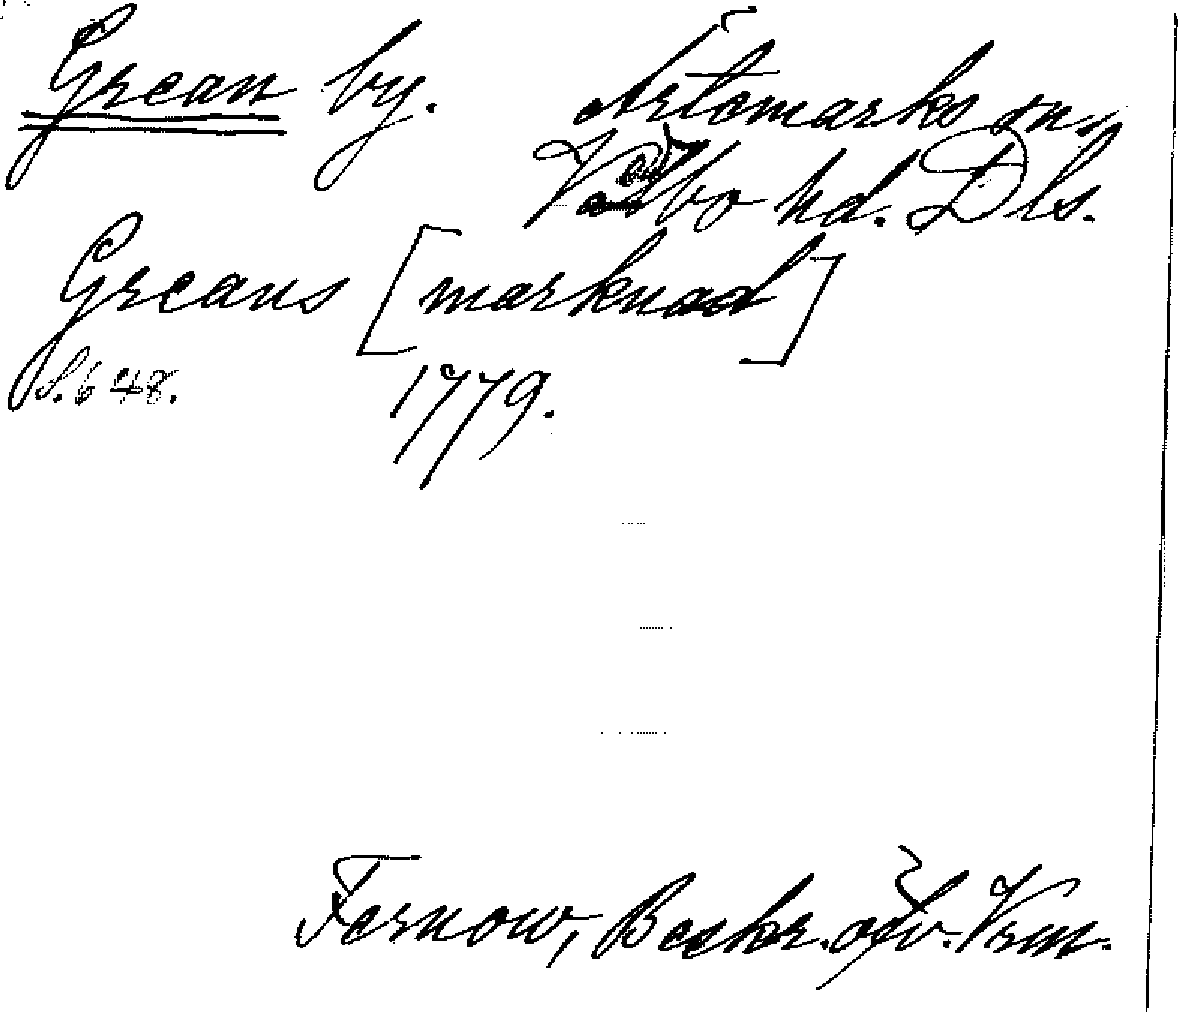 Grean by. Ärtemarks sn.
Vedbo hd. Dls.
Greans [marknad]
S. 648. 1779.
Fernow, Beskr. öfv. Vrm.